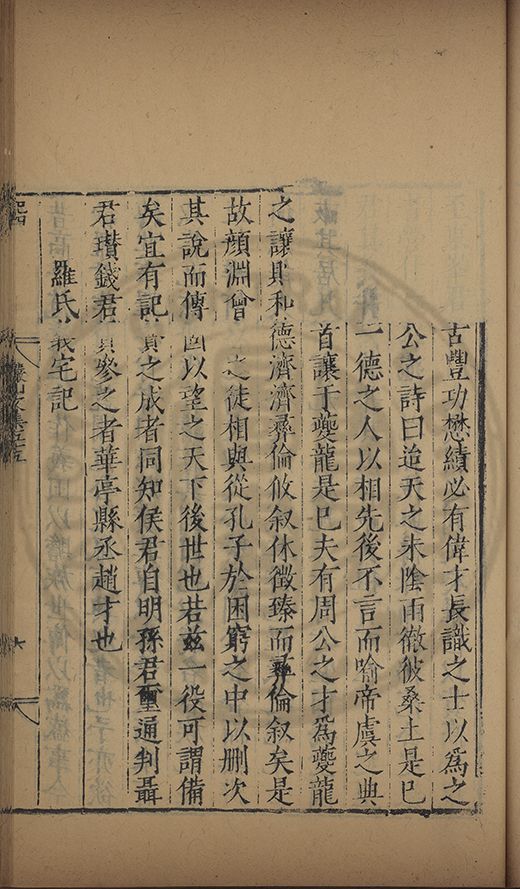 古豐功懋績必有偉才長識之士以為之
公之詩曰迨天之未陰雨徹彼桑土是已
一德之人以相先後不言而喻帝虞之典
首讓于夔龍是已夫有周公之才為夔龍
之讓則和德濟濟彞倫攸叙休徵臻而彞倫叙矣是
故顏淵曾之徒相與從孔子於困窮之中以刪次
其說而傳以望之天下後世也若玆一役可謂備
矣宜有記之成者同知侯君自明孫君璽通判聶
君瓚錢君參之者華亭縣丞趙才也
羅氏義宅記